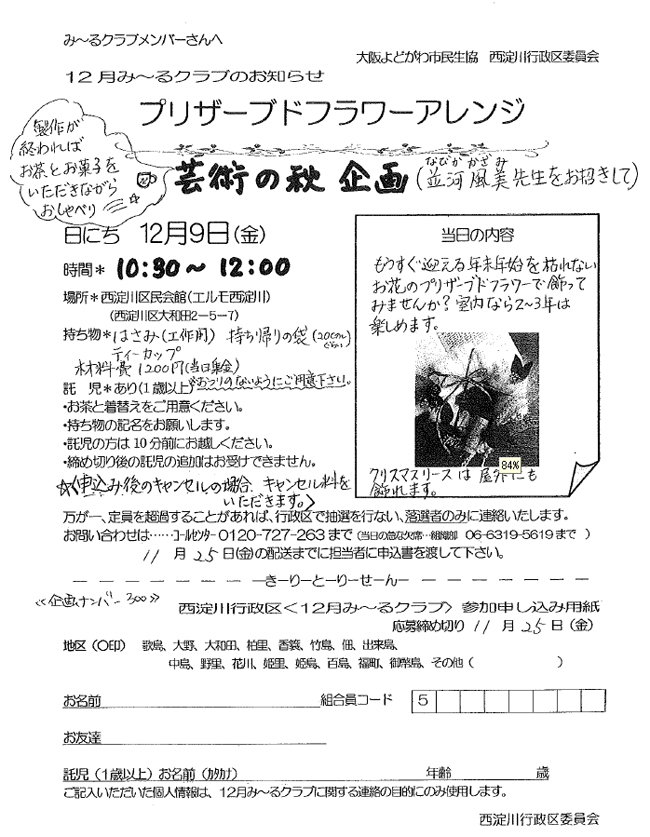 み～るクラブメンバーさんへ
大阪よどがわ市民生協 西淀川行政区委員会
12月み～るクラブのお知らせ
プリザーブドフラワーアレンジ
製作が
終われば
お茶とお菓子を
いただきながら
おしゃべり
芸術の秋 企画(並河風美先生をお招きして)
なびか かざみ
日にち 12月9日(金)
時間* 10:30～12:00
場所*西淀川区民会館(エルモ西淀川)
(西淀川区大和田2-5-7)
持ち物*はさみ(工作用) 持ち帰りの袋(20cmぐらい)
ティーカップ
材料費1200円(当日集金)
託 児*あり(1歳以上)※おつりのないようにご用意下さい。
・お茶と着替えをご用意ください。
・持ち物の記名をお願いします。
・託児の方は10分前にお越しください。
・締め切り後の託児の追加はお受けできません。
☆〈申込み後のキャンセルの場合、キャンセル料を
いただきます。〉
当日の内容
もうすぐ迎える年末年始を枯れない
お花のプリザーブドフラワーで飾って
みませんか?室内なら2~3年は
楽しめます。
84%
クリスマスリースは屋外にも
飾れます。
万が一、定員を超過することがあれば、行政区で抽選を行ない、落選者のみに連絡いたします。
お問い合わせは……コールセンター0120-727-263まで(当日の急な欠席…組織部 06-6319-5619まで )
11月25日(金)の配送までに担当者に申込書を渡して下さい。
きーりーとーりーせーん
≪企画ナンバー300≫
西淀川行政区<12月み～るクラブ>参加申し込み用紙
応募締め切り11月25日(金)
地区(○印) 歌島、大野、大和田、柏里、香簑、竹島、佃、出来島、
中島、野里、花川、姫里、姫島、百島、福町、御幣島、その他( )
お名前 組合員コード 5
お友達
託児(1歳以上)お名前(カタカナ) 年齢 歳
ご記入いただいた個人情報は、12月み～るクラブに関する連絡の目的にのみ使用します。
西淀川行政区委員会